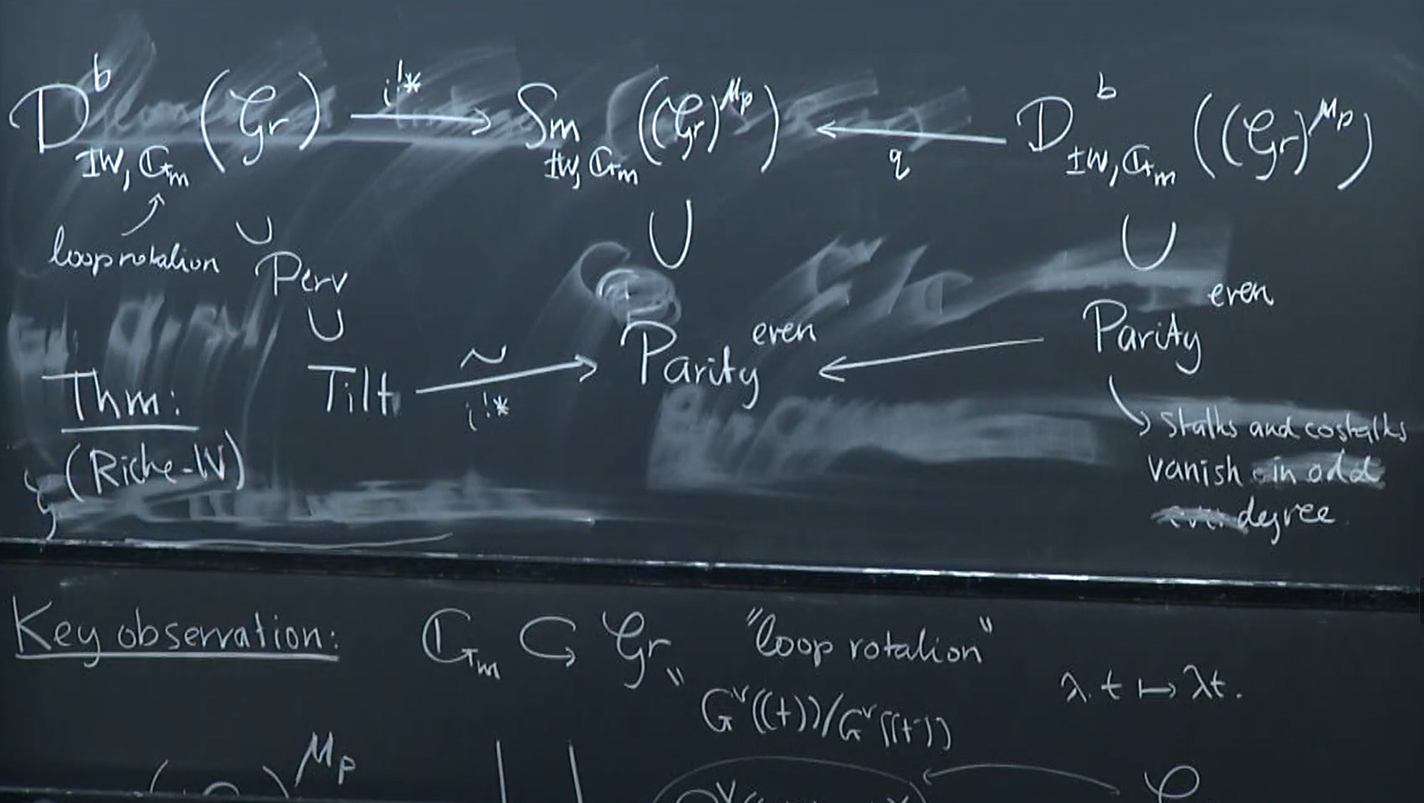 D^b_{IW, 𝔾_m}(𝒢r) —i^{!*}→ Sm_{IW, 𝔾_m}((𝒢r)^{μ_p}) ←q— D^b_{IW, 𝔾_m}((𝒢r)^{μ_p})
loop rotation ∪ ∪ ∪
Perv
∪
Tilt —∼ i^{!*}→ Parity^{even} ← Parity^{even}
Thm:
(Riche-W)
↳ stalks and costalks
vanish in odd
degree.
Key observation: 𝔾_m ↻ 𝒢r "loop rotation"
"
G^∨((t))/G^∨[[t]] λ·t ↦ λt.
μ_p